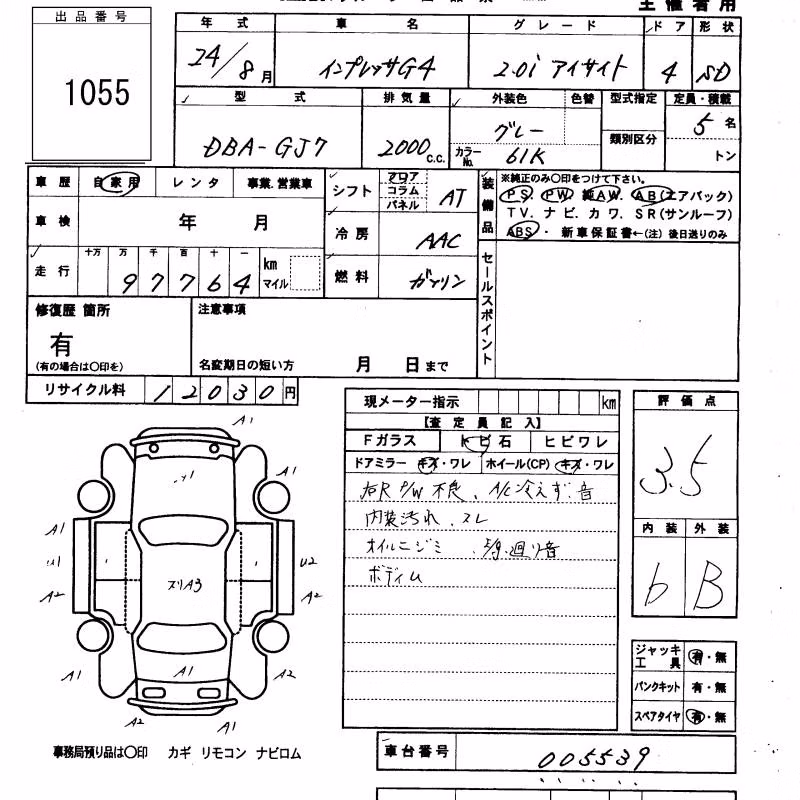 主催者用
出品番号
1055
年式 車名 グレード ドア 形状
24/8月 インプレッサG4 2.0i アイサイト 4 SD
型式 排気量 外装色 色替 型式指定 定員・積載
DBA-GJ7 2000c.c. グレー 5名
カラーNo. 61K 類別区分 トン
車歴 自家用 レンタ 事業.営業車
車検 年 月
走行 十万 万 千 百 十 一
97764 km マイル
シフト フロア コラム パネル AT
冷房 AAC
燃料 ガソリン
装備品
※純正のみ〇印をつけて下さい。
PS. PW. 純AW. AB(エアバック)
TV. ナビ. カワ. SR(サンルーフ)
ABS・ 新車保証書←(注) 後日送りのみ
セールスポイント
修復歴 箇所
有
(有の場合は〇印を)
注意事項
名変期日の短い方 月 日まで
リサイクル料 12030円
現メーター指示 km
【査定員記入】
Fガラス トビ石 ヒビワレ
ドアミラー キズ・ワレ ホイール(CP) キズ・ワレ
右R P/W 不良、A/C冷えず.音
内装汚れ.スレ
オイルニジミ 廻り音
ボディム
評価点
3.5
内装 外装
6 B
ジャッキ工具 有・無
パンクキット 有・無
スペアタイヤ 有・無
A1
A1 A1
A1
U2
A2 A2
ズリA3
A1 A1 A2
A2 A1
事務局預り品は〇印 カギ リモコン ナビロム
車台番号 005539